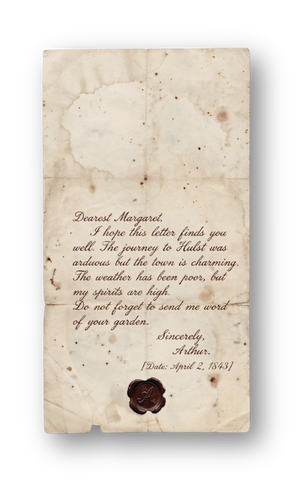 Dearest Margaret,
I hope this letter finds you
well. The journey to Hulst was
arduous but the town is charming.
The weather has been poor, but
my spirits are high.
Do not forget to send me word
of your garden.
Sincerely,
Arthur.
[Date: April 2, 1843]